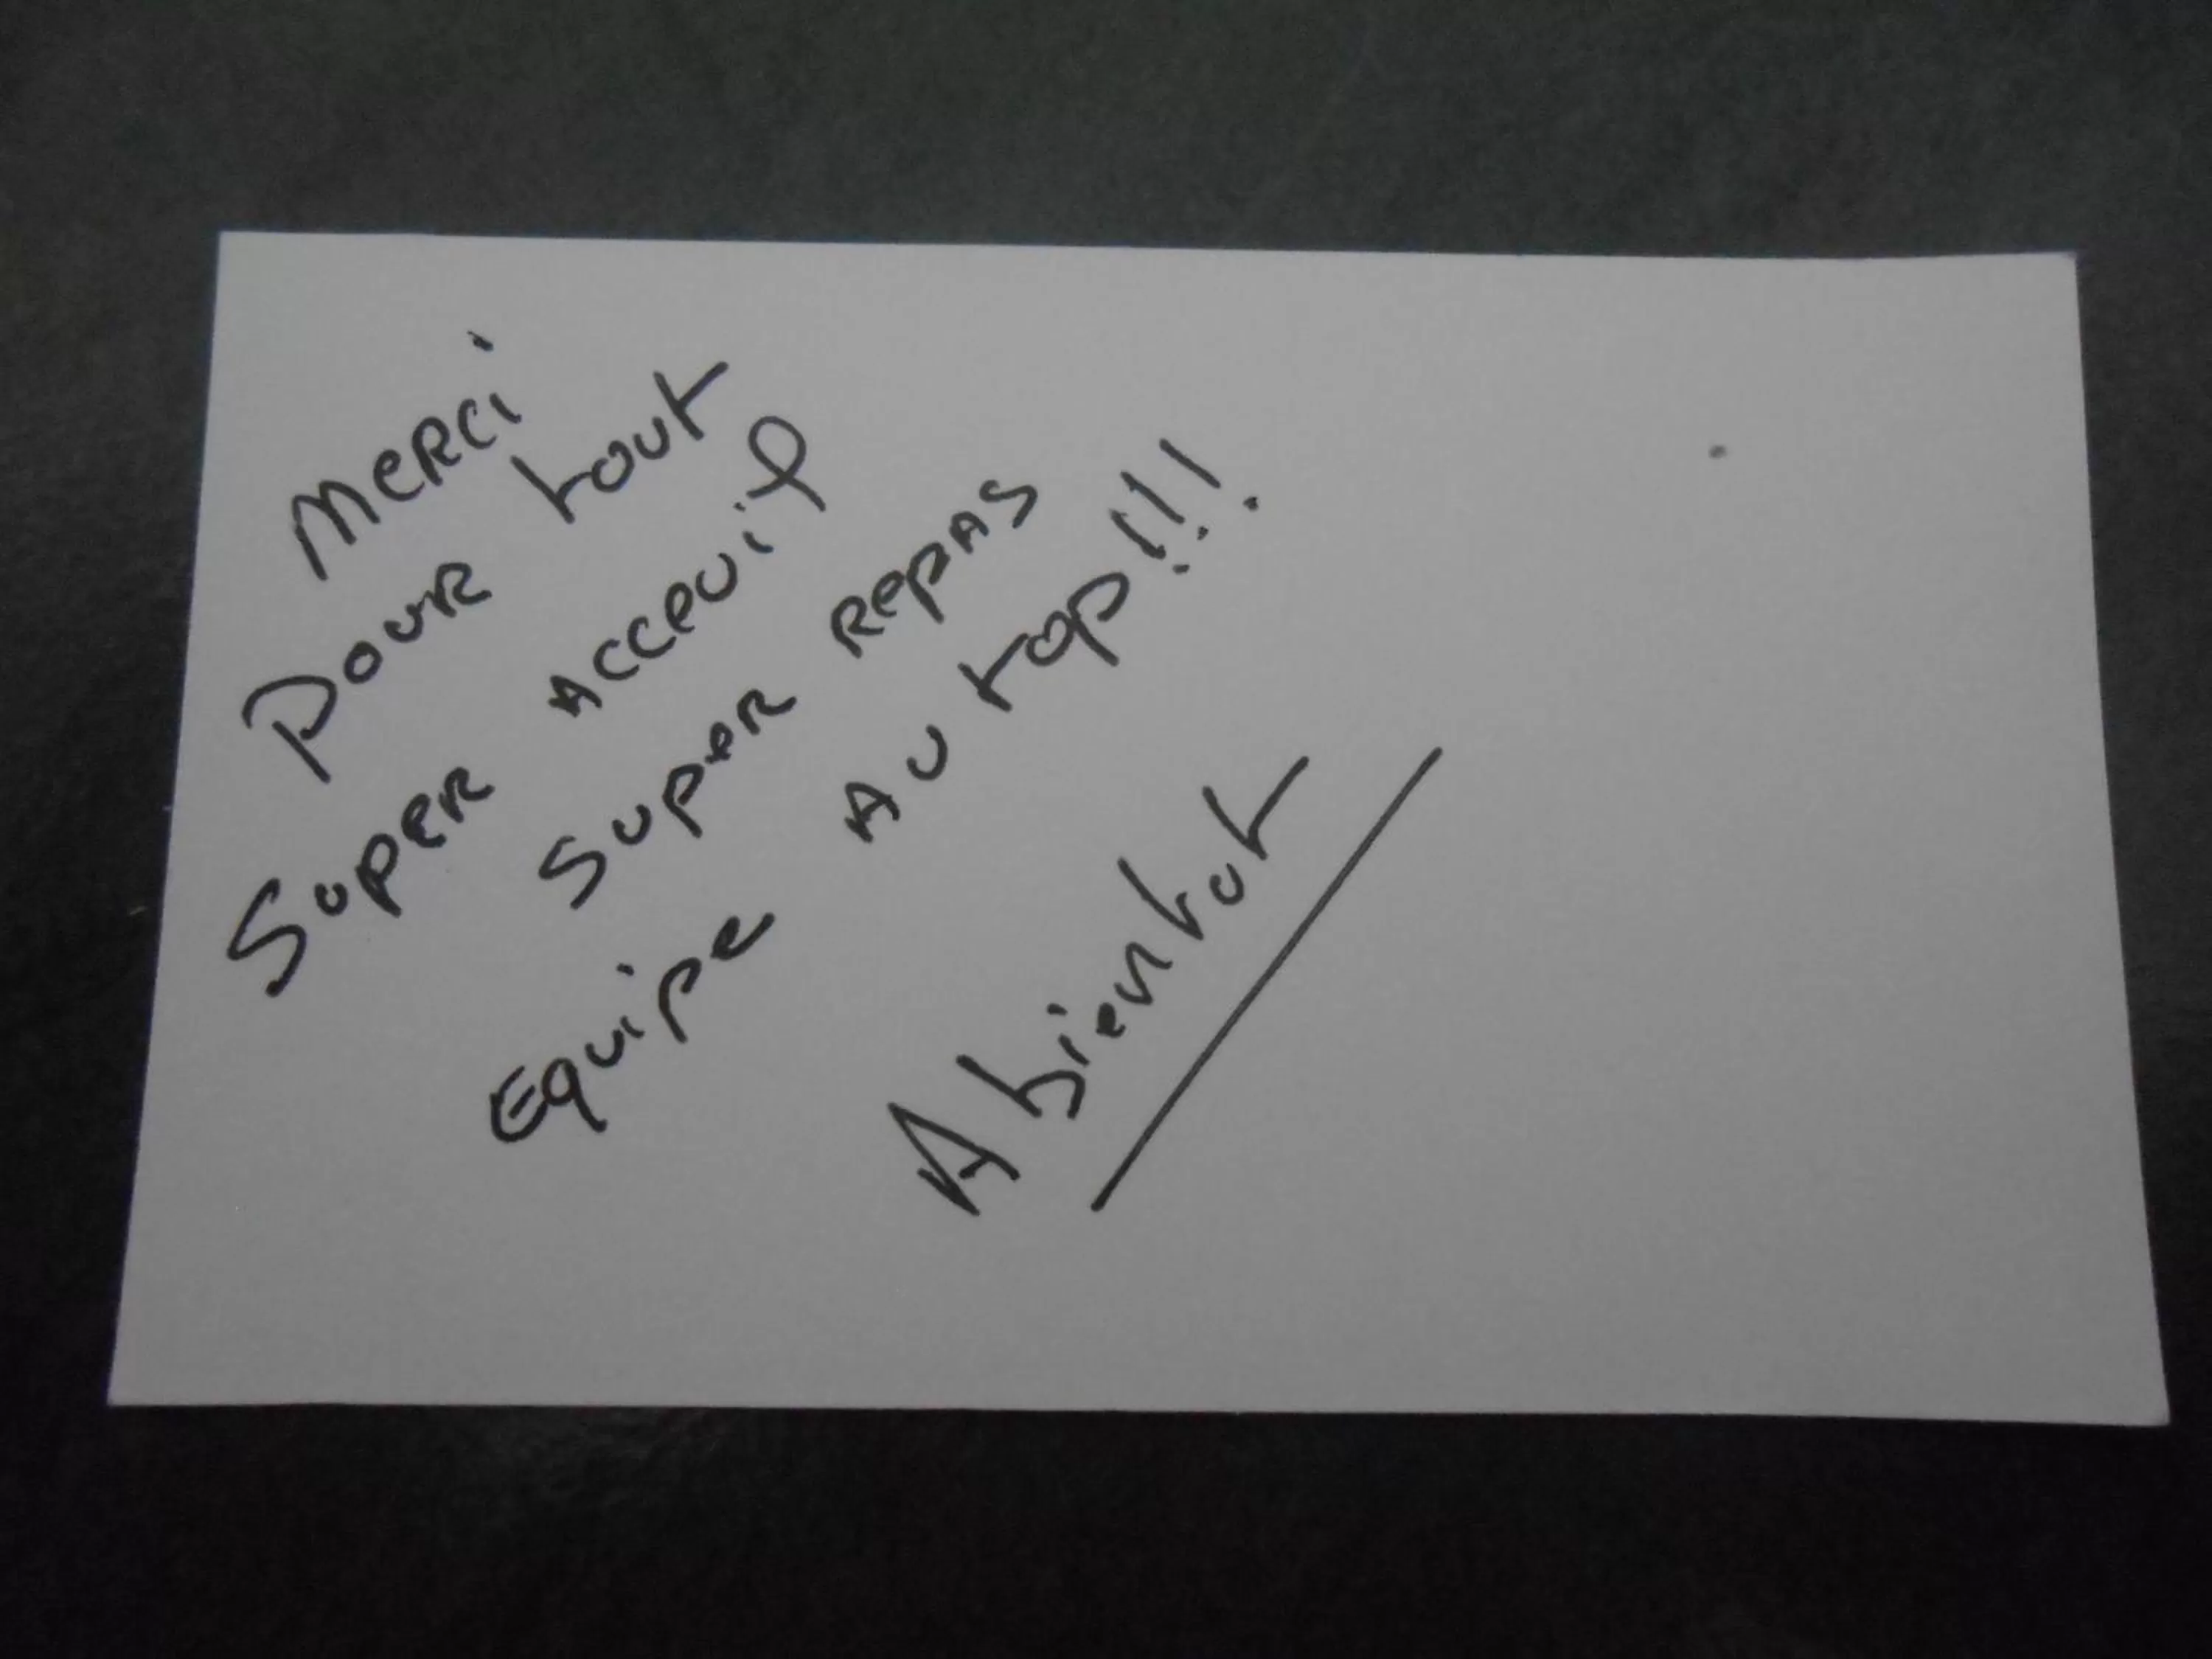 Merci
Pour tout
Super Acceuil
Super Repas
Equipe Au top!!!
Abientot